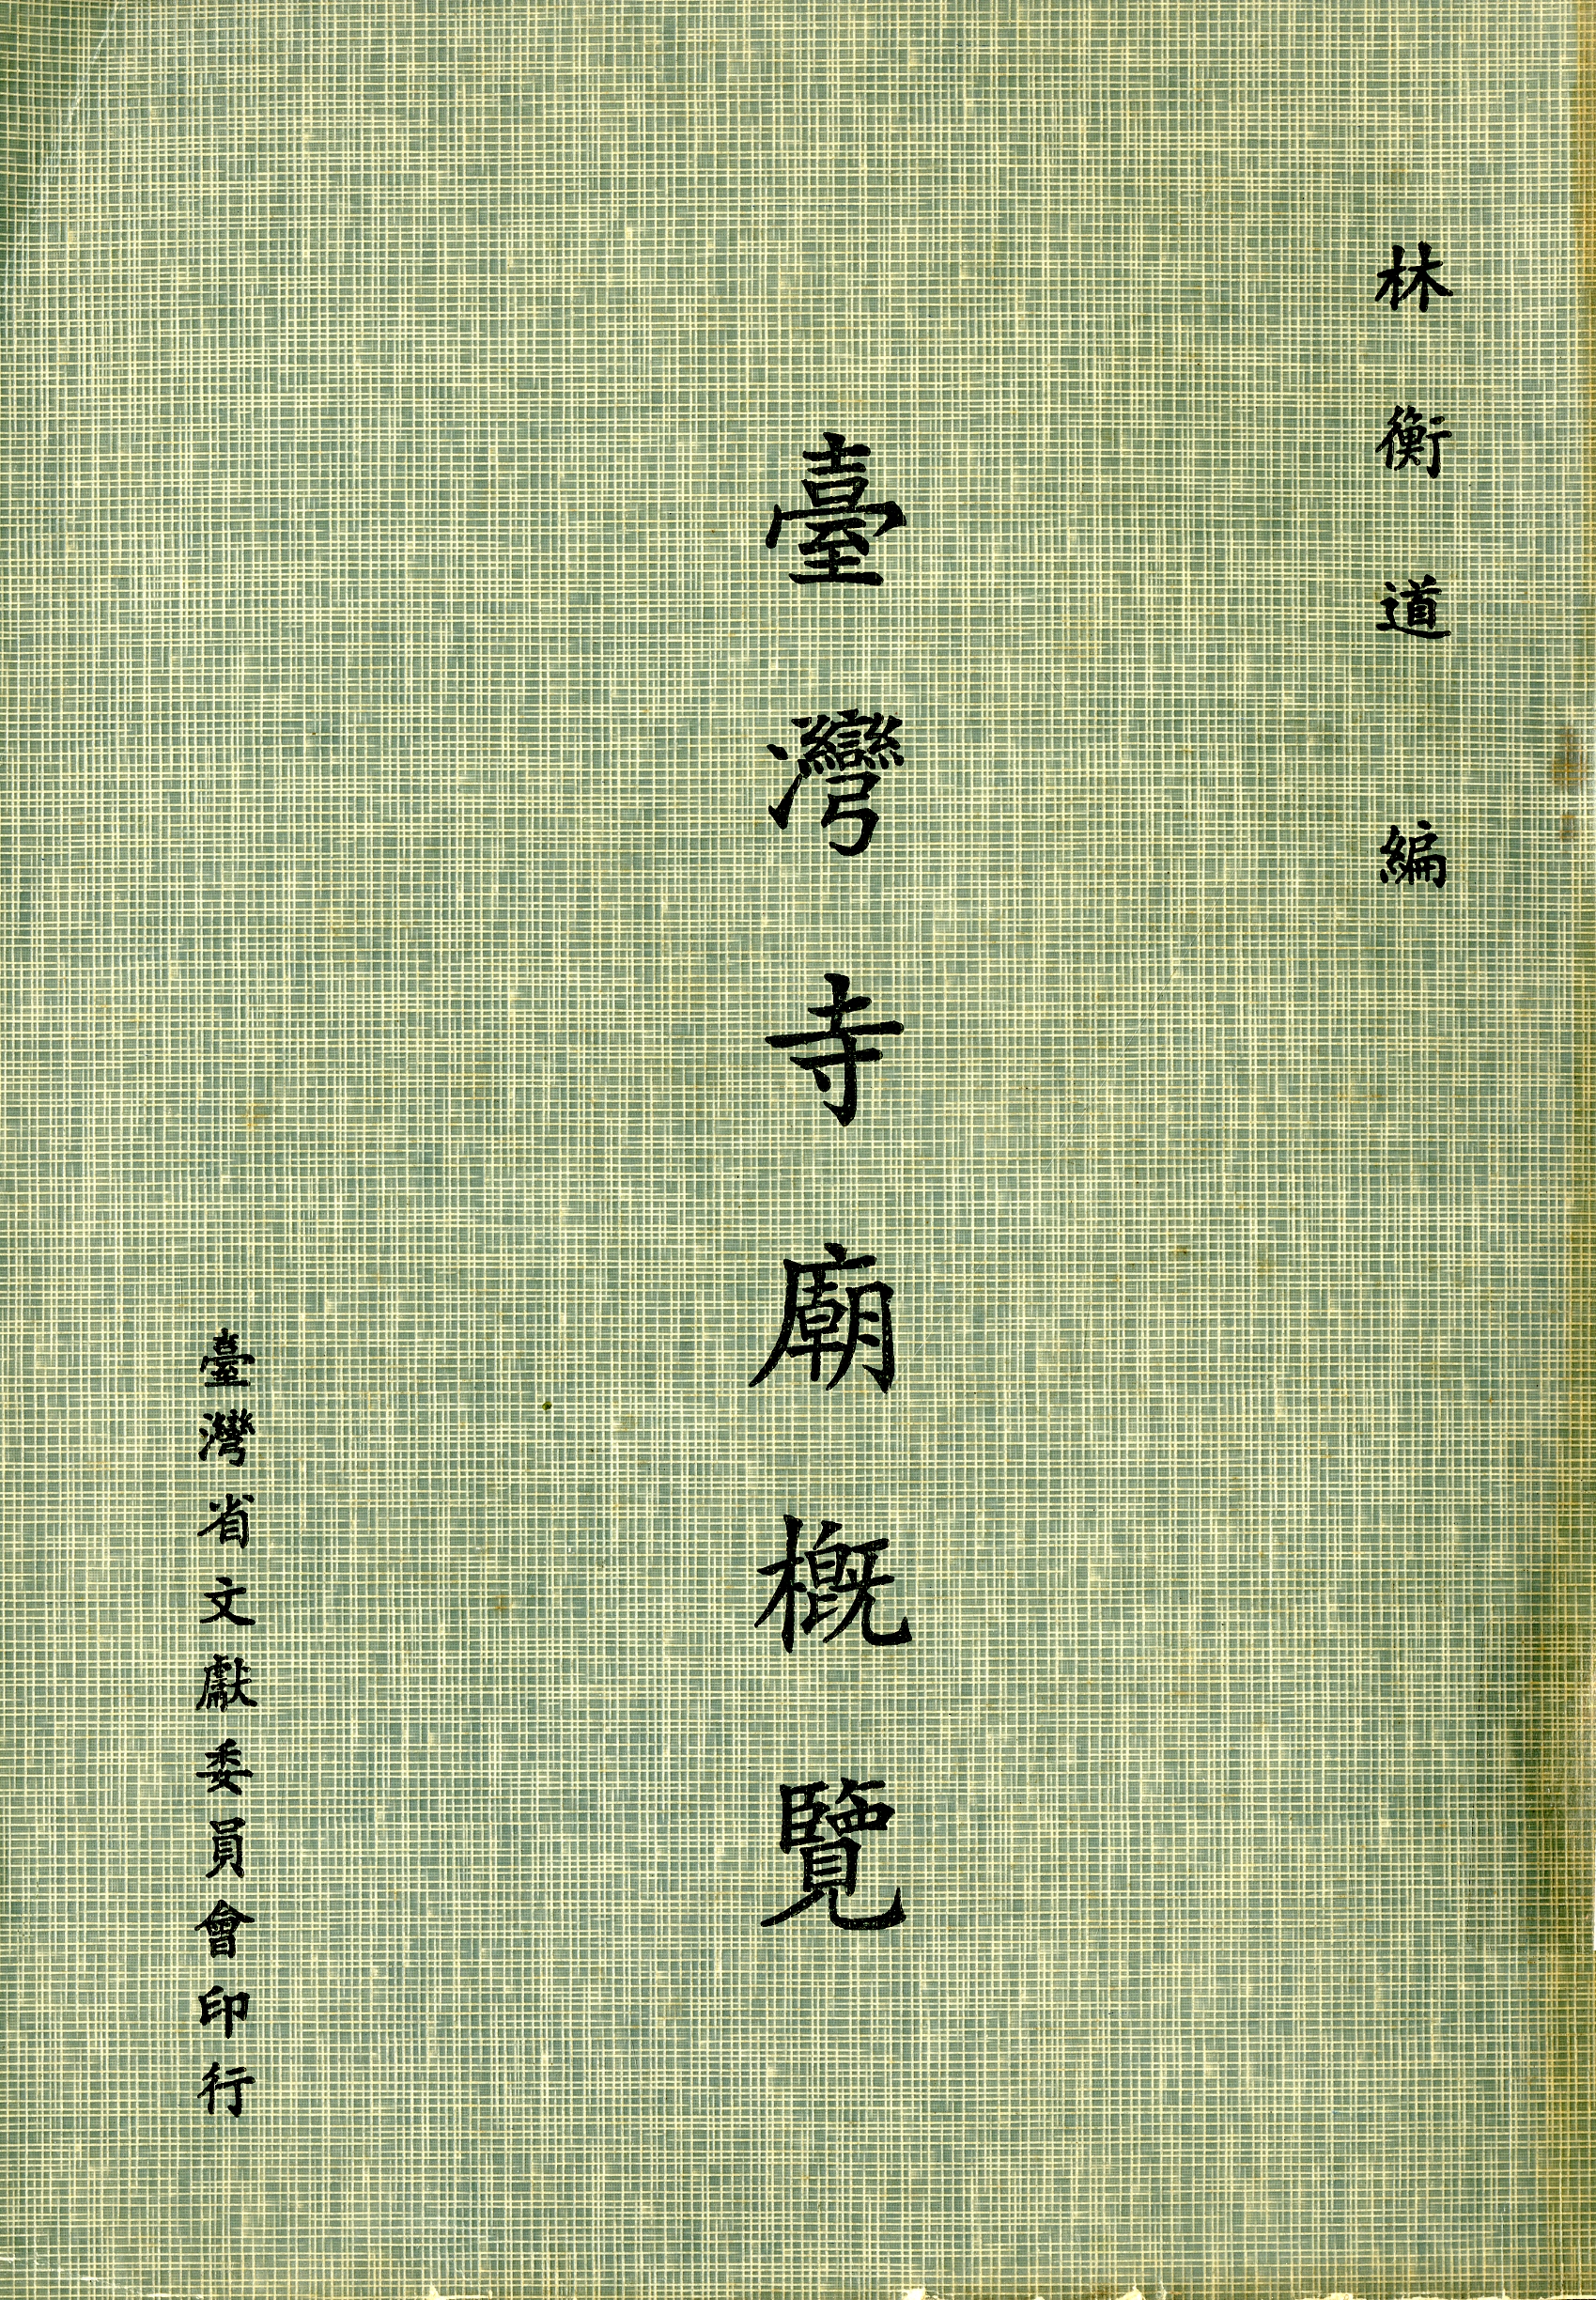 林衡道編
臺灣寺廟概覽
臺灣省文獻委員會印行